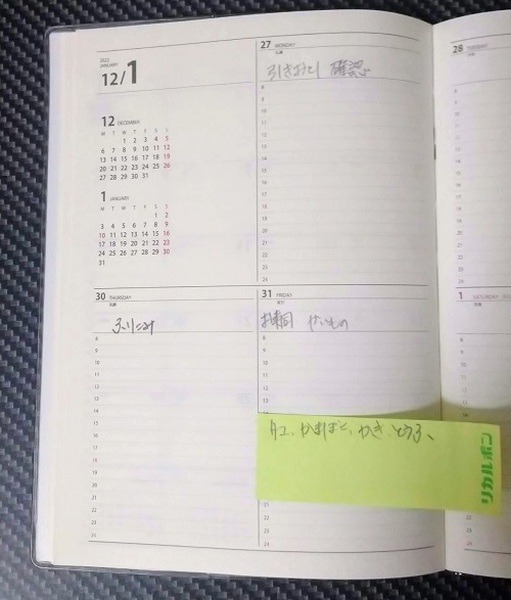 2022
JANUARY
12/1
12 DECEMBER
M T W T F S S
1 2 3 4 5
6 7 8 9 10 11 12
13 14 15 16 17 18 19
20 21 22 23 24 25 26
27 28 29 30 31
1 JANUARY
M T W T F S S
1 2
3 4 5 6 7 8 9
10 11 12 13 14 15 16
17 18 19 20 21 22 23
24 25 26 27 28 29 30
31
27 MONDAY
確認
8
9
10
11
12
13
14
15
16
17
18
19
20
21
22
23
24
28 TUESDAY
30 THURSDAY
8
9
10
11
12
13
14
15
16
17
18
19
20
21
22
23
24
31 FRIDAY
8
9
10
11
12
13
かまぼこ、かき、とうふ、
リカルボン
20
21
22
23
24
1 SATURDAY